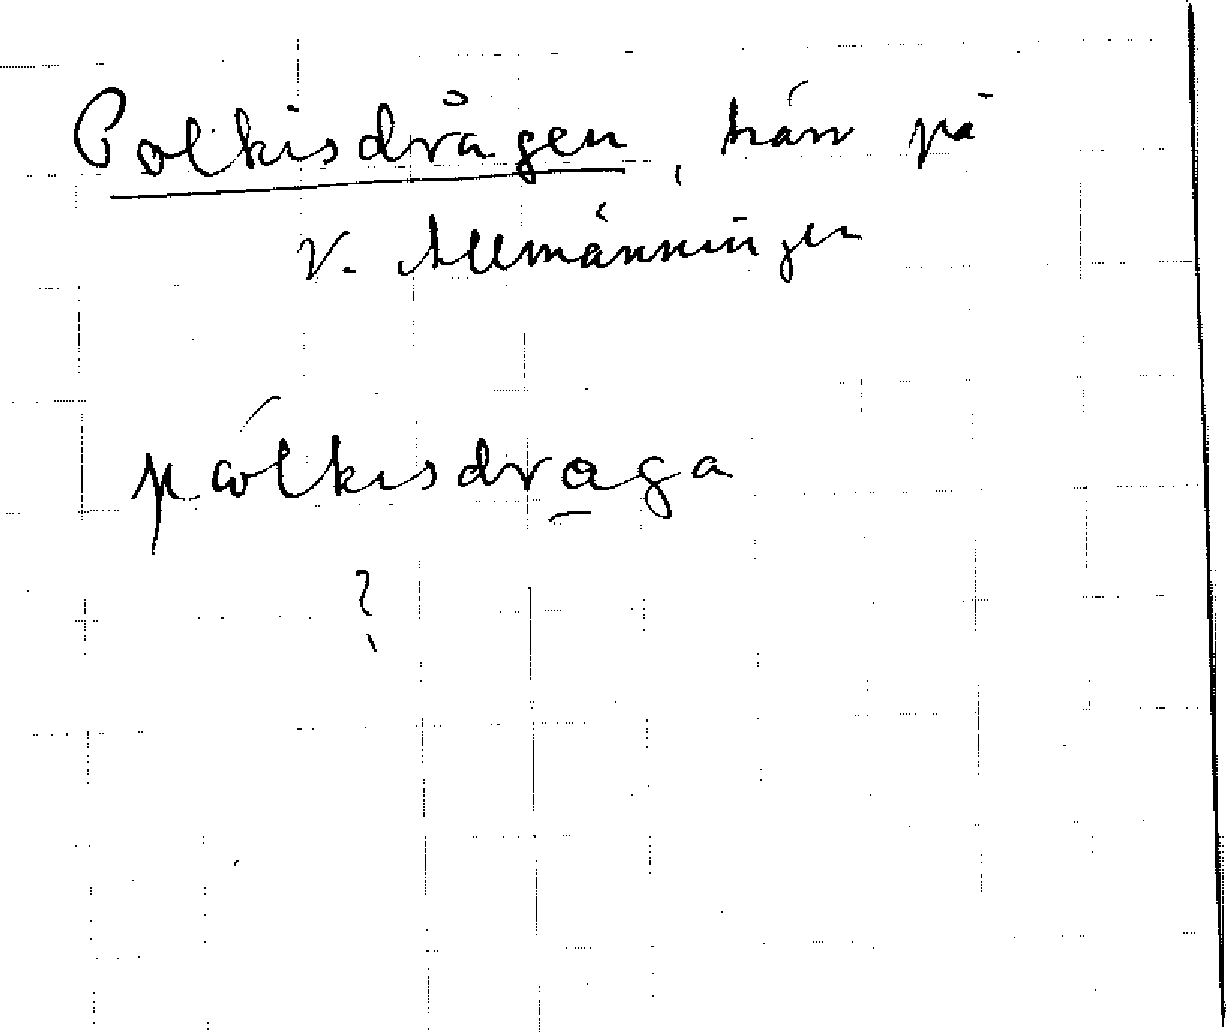 Polkisdrågen, kärr på
V. Allmänningen
pålkisdraga
?